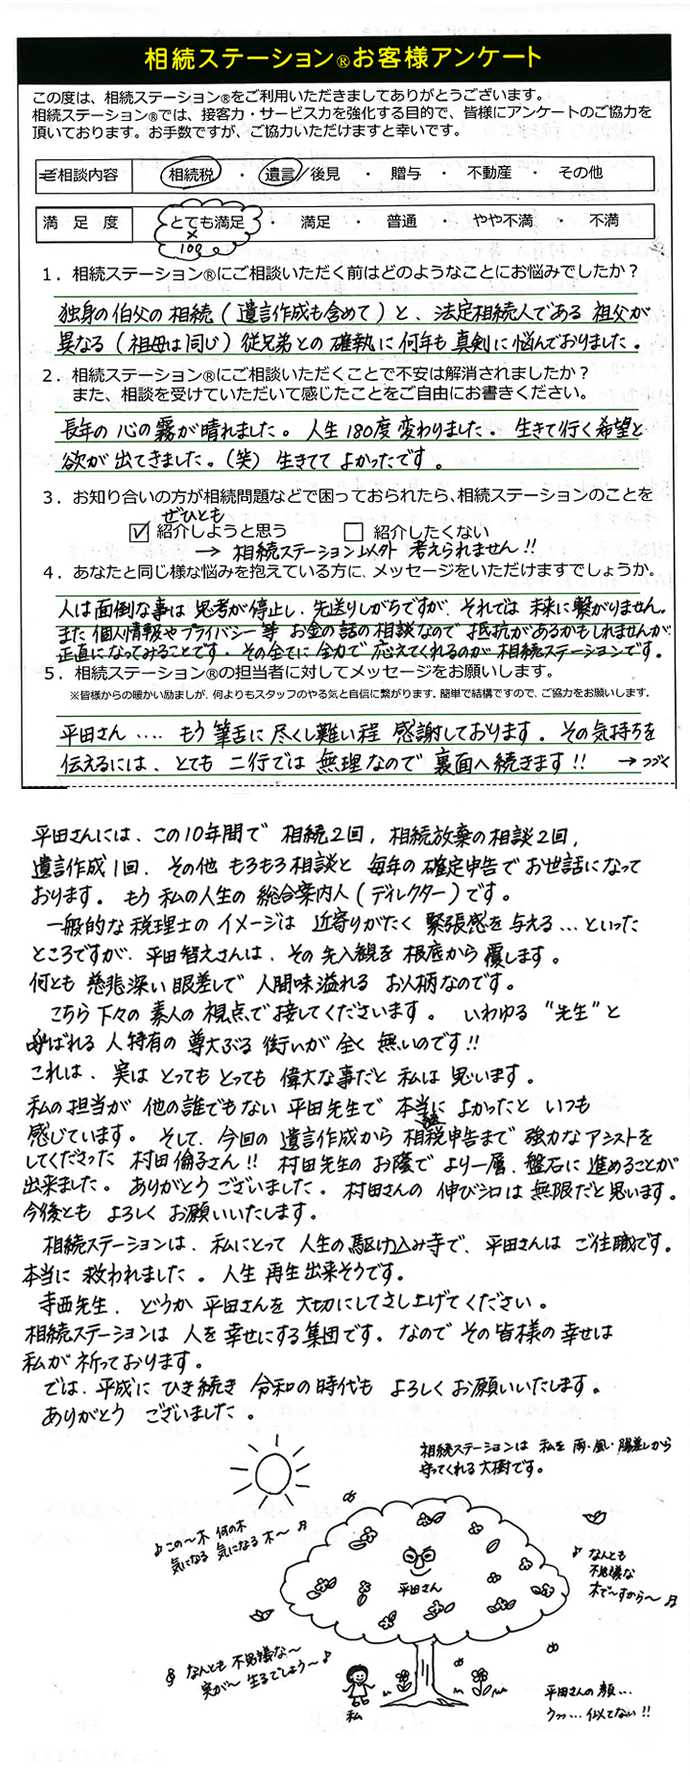 相続ステーション®お客様アンケート
この度は、相続ステーション®をご利用いただきましてありがとうございます。
相続ステーション®では、接客力・サービス力を強化する目的で、皆様にアンケートのご協力を
頂いております。お手数ですが、ご協力いただけますと幸いです。
ご相談内容 相続税 ・ 遺言/後見 ・ 贈与 ・ 不動産 ・ その他
満足度 とても満足 ・ 満足 ・ 普通 ・ やや不満 ・ 不満
×
100
1．相続ステーション®にご相談いただく前はどのようなことにお悩みでしたか？
独身の伯父の相続（遺言作成も含めて）と、法定相続人である祖父が
異なる（祖母は同じ）従兄弟との確執に何年も真剣に悩んでおりました。
2．相続ステーション®にご相談いただくことで不安は解消されましたか？
また、相談を受けていただいて感じたことをご自由にお書きください。
長年の心の霧が晴れました。人生180度変わりました。生きて行く希望と
欲が出てきました。（笑）生きてて よかったです。
3．お知り合いの方が相続問題などで困っておられたら、相続ステーションのことを
ぜひとも
☑ 紹介しようと思う □ 紹介したくない
→ 相続ステーション以外 考えられません!!
4．あなたと同じ様な悩みを抱えている方に、メッセージをいただけますでしょうか。
人は面倒な事は思考が停止し、先送りしがちですが、それでは未来に繋がりません。
また個人情報やプライバシー等 お金の話の相談なので抵抗があるかもしれませんが
正直になってみることです。その全てに全力で応えてくれるのが相続ステーションです。
5．相続ステーション®の担当者に対してメッセージをお願いします。
※皆様からの暖かい励ましが、何よりもスタッフのやる気と自信に繋がります。簡単で結構ですので、ご協力をお願いします。
平田さん‥‥ もう筆舌に尽くし難い程 感謝しております。その気持ちを
伝えるには、とても 二行では 無理なので 裏面へ続きます!! →つづく
平田さんには、この10年間で 相続2回，相続放棄の相談2回，
遺言作成1回、その他もろもろ相談と 毎年の確定申告でお世話になって
おります。もう私の人生の総合案内人（ディレクター）です。
一般的な税理士のイメージは 近寄りがたく 緊張感を与える…といった
ところですが、平田智えさんは、その先入観を根底から覆します。
何とも慈悲深い眼差しで 人間味溢れる お人柄なのです。
こちら下々の素人の視点で接してくださいます。 いわゆる “先生”と
呼ばれる人特有の 尊大ぶる 衒いが 全く 無いのです!!
これは、実は とってもとっても 偉大な事だと私は思います。
私の担当が 他の誰でもない 平田先生で 本当に よかったと いつも
感じています。そして、今回の遺言作成から 相続税申告まで 強力なアシストを
してくださった 村田倫子さん!! 村田先生のお蔭でより一層、盤石に進めることが
出来ました。ありがとうございました。村田さんの 伸びシロは無限だと思います。
今後とも よろしくお願いいたします。
相続ステーションは、私にとって 人生の駆け込み寺で、平田さんは ご住職です。
本当に救われました。人生再生出来そうです。
寺西先生、どうか 平田さんを 大切にしてさし上げてください。
相続ステーションは 人を幸せにする集団です。なので その皆様の幸せは
私が祈っております。
では、平成に ひき続き 令和の時代も よろしくお願いいたします。
ありがとう ございました。
相続ステーションは 私を 雨・風・陽差しから
守ってくれる大樹です。
♪この〜木 何の木
気になる 気になる 木〜♬
平田さん
♪なんとも
不思議な
木で〜すから〜♬
なんとも 不思議な〜
実が〜 生るでしょう〜♪
私
平田さんの顔…
うっ…似てない!!